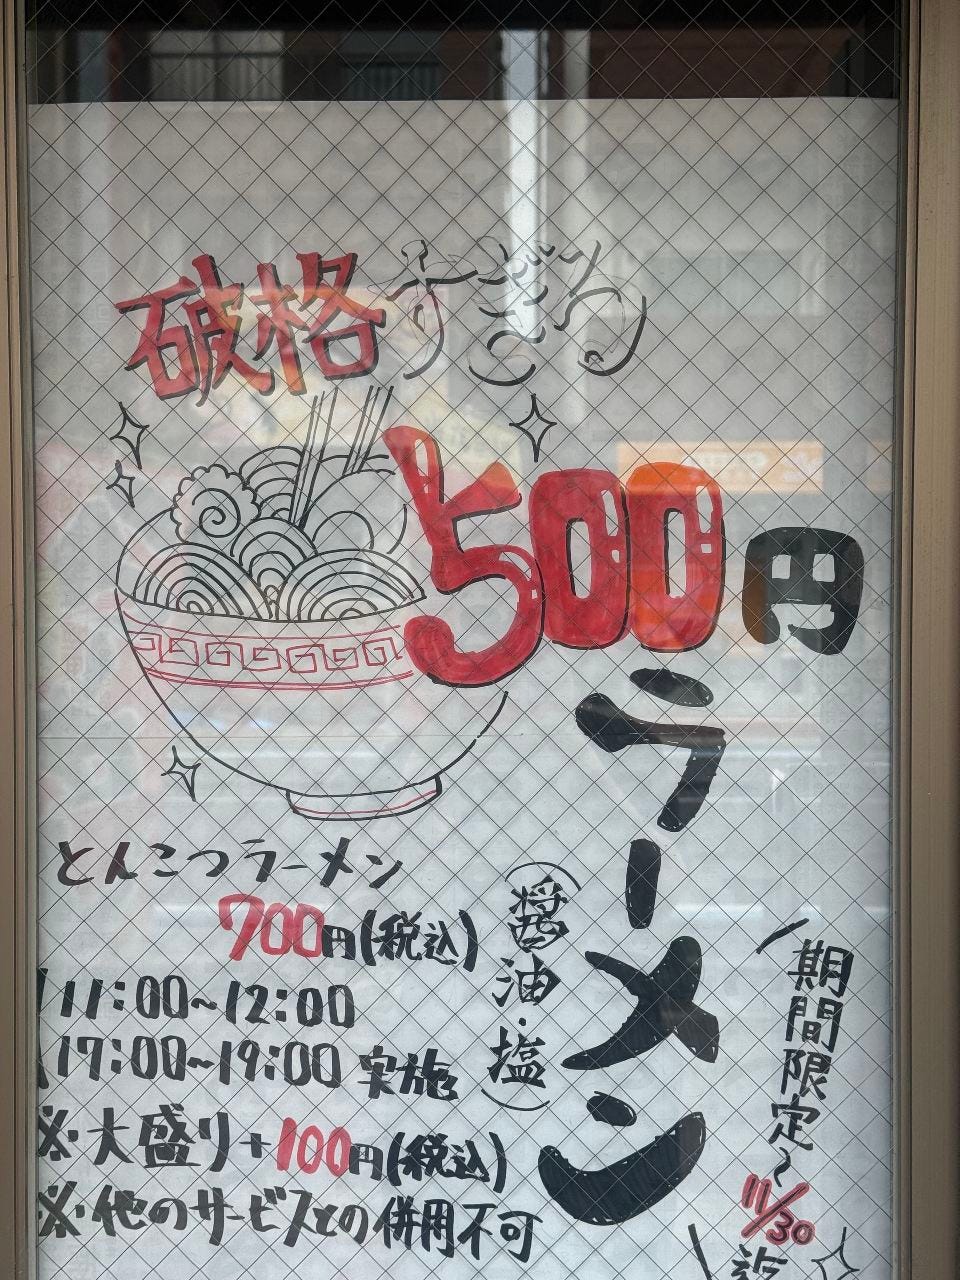 破格すぎる
500円
ラーメン
(醤油・塩)
とんこつラーメン
700円(税込)
11:00~12:00
17:00~19:00 実施
※大盛り+100円(税込)
※他のサービスとの併用不可
期間限定~
11/30
迄